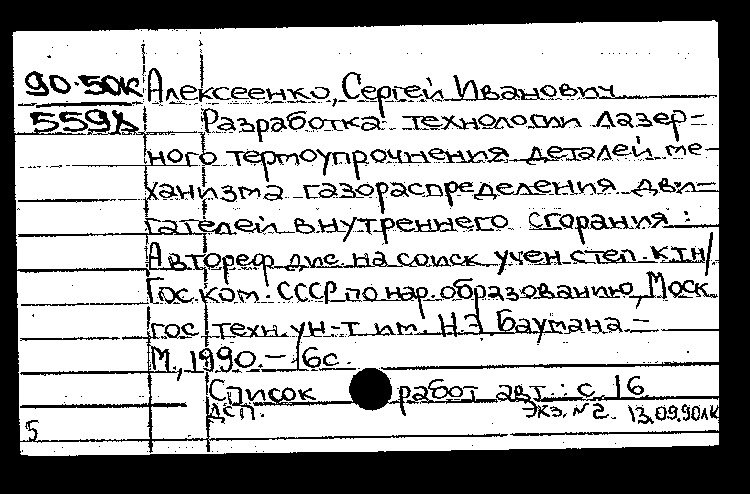 90-50к Алексеенко, Сергей Иванович
559д Разработка технологии лазер-
ного термоупрочнения деталей ме-
ханизма газораспределения дви-
гателей внутреннего сгорания :
Автореф дис. на соиск учен степ. ктн/
Гос. ком. СССР по нар. образованию, Моск
гос техн. ун-т им. Н.Э Баумана. -
М., 1990. - 16с.
Список работ авт. : с. 16
ДСП. Экз. №2. 13.09.90лк
5